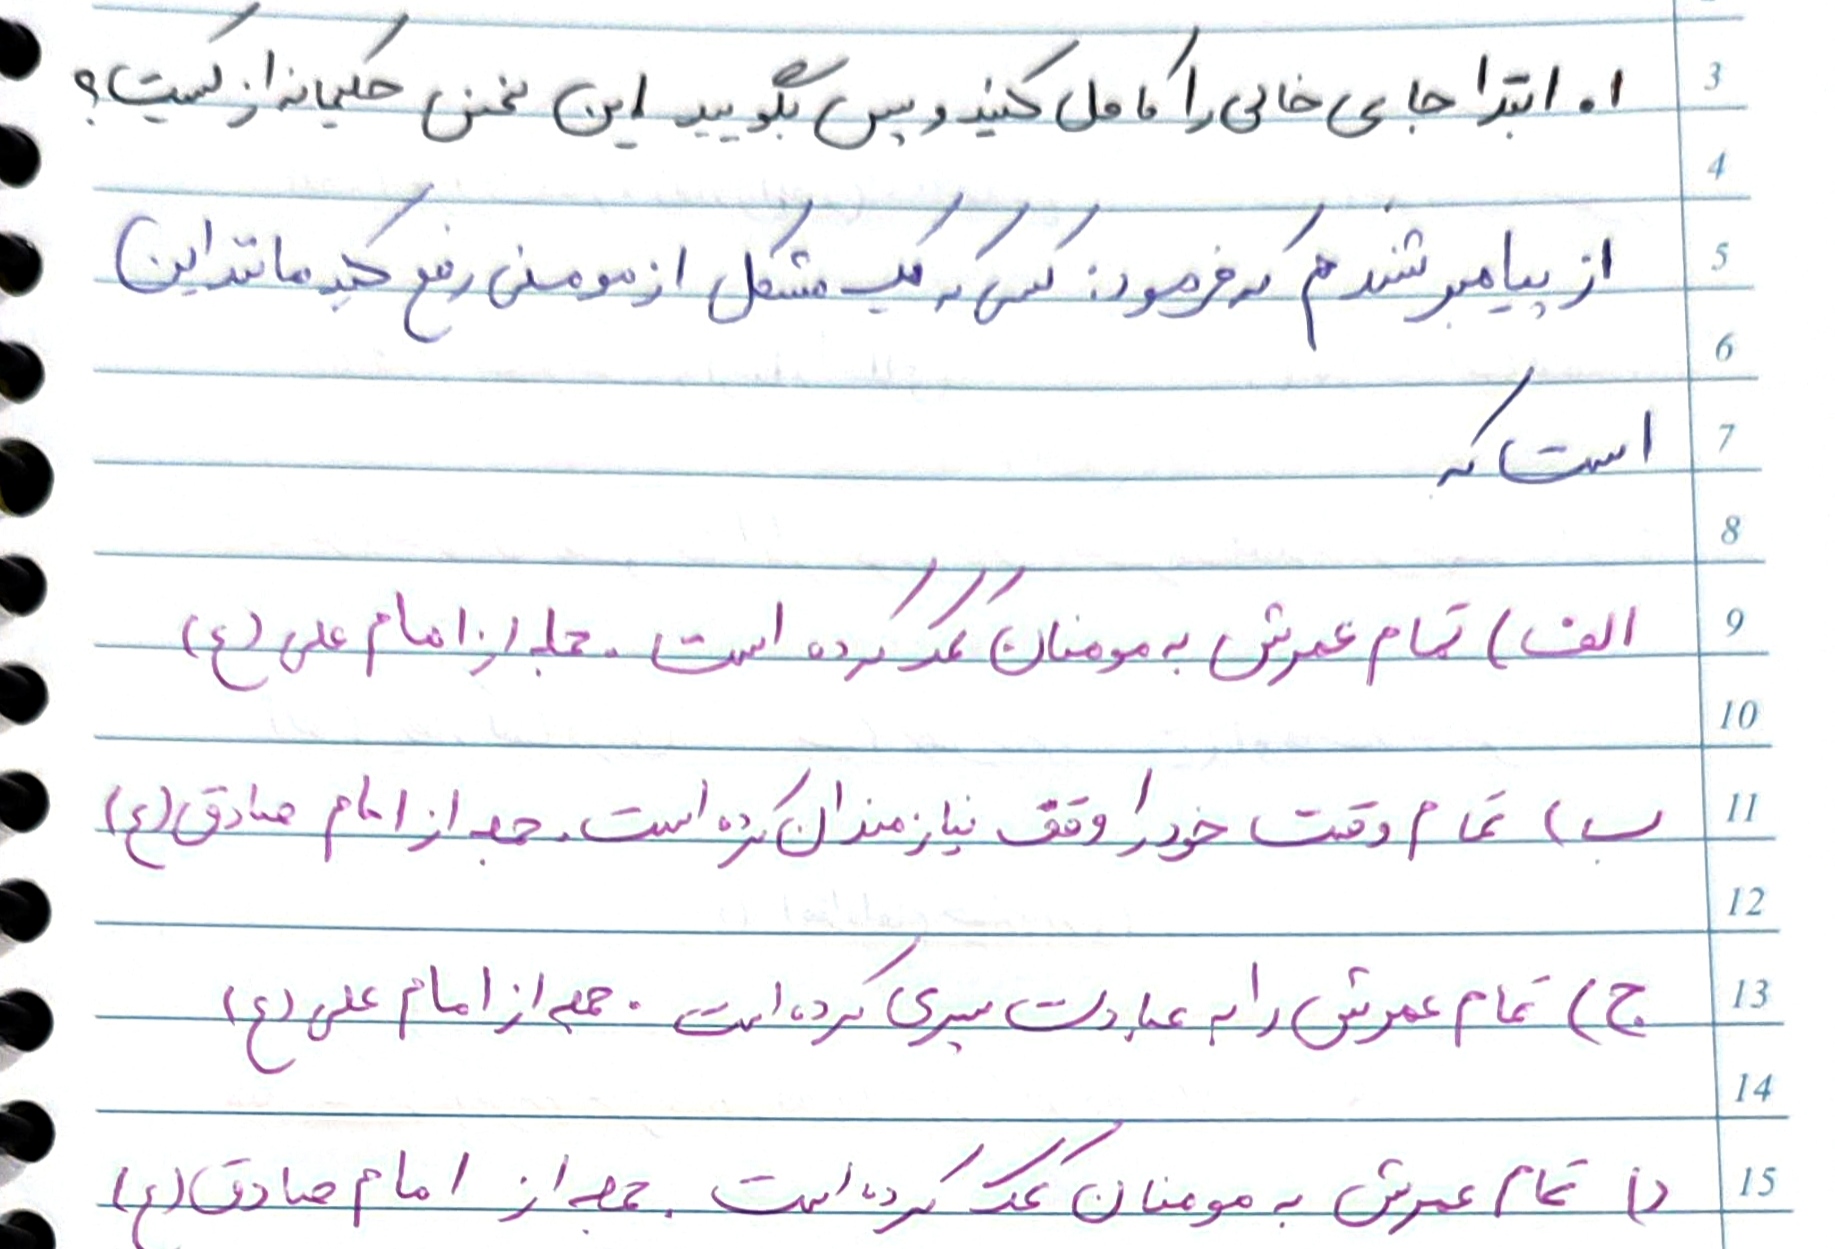 3
۱. ابتدا جای خالی را کامل کنید و سپس بگویید این سخن حکیمانه از کیست؟
4
5
از پیامبر شنیدم که فرمود: کسی که یک مشکل از مومنی رفع کند مانند این
6
7
است که
8
9
الف) تمام عمرش به مومنان کمک کرده است. جمله از امام علی (ع)
10
11
ب) تمام وقت خود را وقف نیازمندان کرده است. جمله از امام صادق (ع)
12
13
ج) تمام عمرش را به عبادت سپری کرده است. جمله از امام علی (ع)
14
15
د) تمام عمرش به مومنان کمک کرده است. جمله از امام صادق (ع)